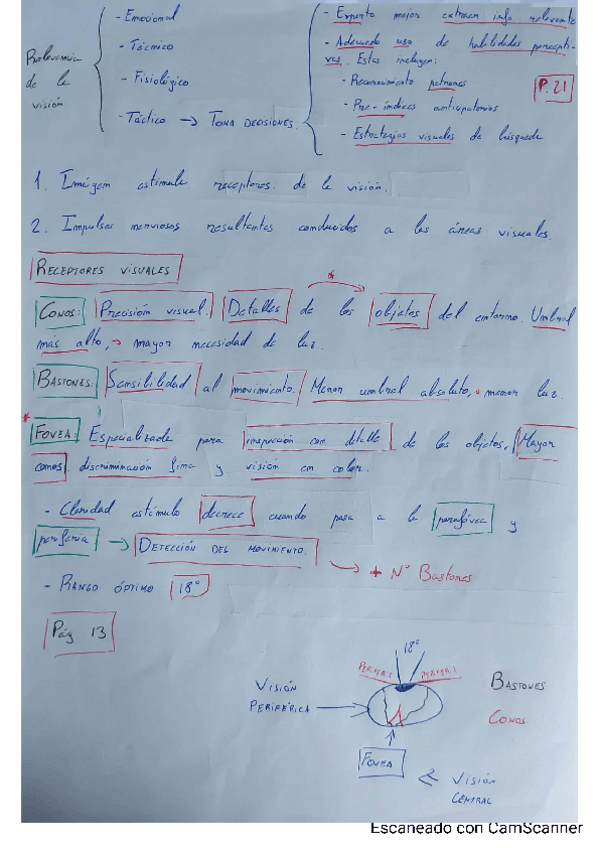 Relevancia
de la
visión
- Emocional
- Técnico
- Fisiológico
- Táctico → TOMA DECISIONES.
- Experto mejor extraen info relevante
- Adecuado uso de habilidades percepti-
vas. Estas incluyen:
- Reconocimiento patrones
- Pre-índices anticipatorios
- Estrategias visuales de búsqueda
P. 21
1. Imágen estimula receptores de la visión.
2. Impulsos nerviosos resultantes conducidos a las áreas visuales.
RECEPTORES VISUALES
CONOS: Precisión visual. Detalles de los objetos del entorno. Umbral
más alto, → mayor necesidad de luz.
BASTONES: Sensibilidad al movimiento. Menor umbral absoluto, menor luz.
* FOVEA Especializada para inspección con detalle de los objetos. Mayor
conos. discriminación fina y visión en color.
- Claridad estímulo decrece cuando pasa a la parafóvea y
periferia → DETECCIÓN DEL MOVIMIENTO.
→ + Nº Bastones
- RANGO ÓPTIMO 18º
Pág 13
18º
PERIFER.
PERIFER.
VISIÓN
PERIFÉRICA
BASTONES
CONOS
FOVEA
VISIÓN
CENTRAL
Escaneado con CamScanner